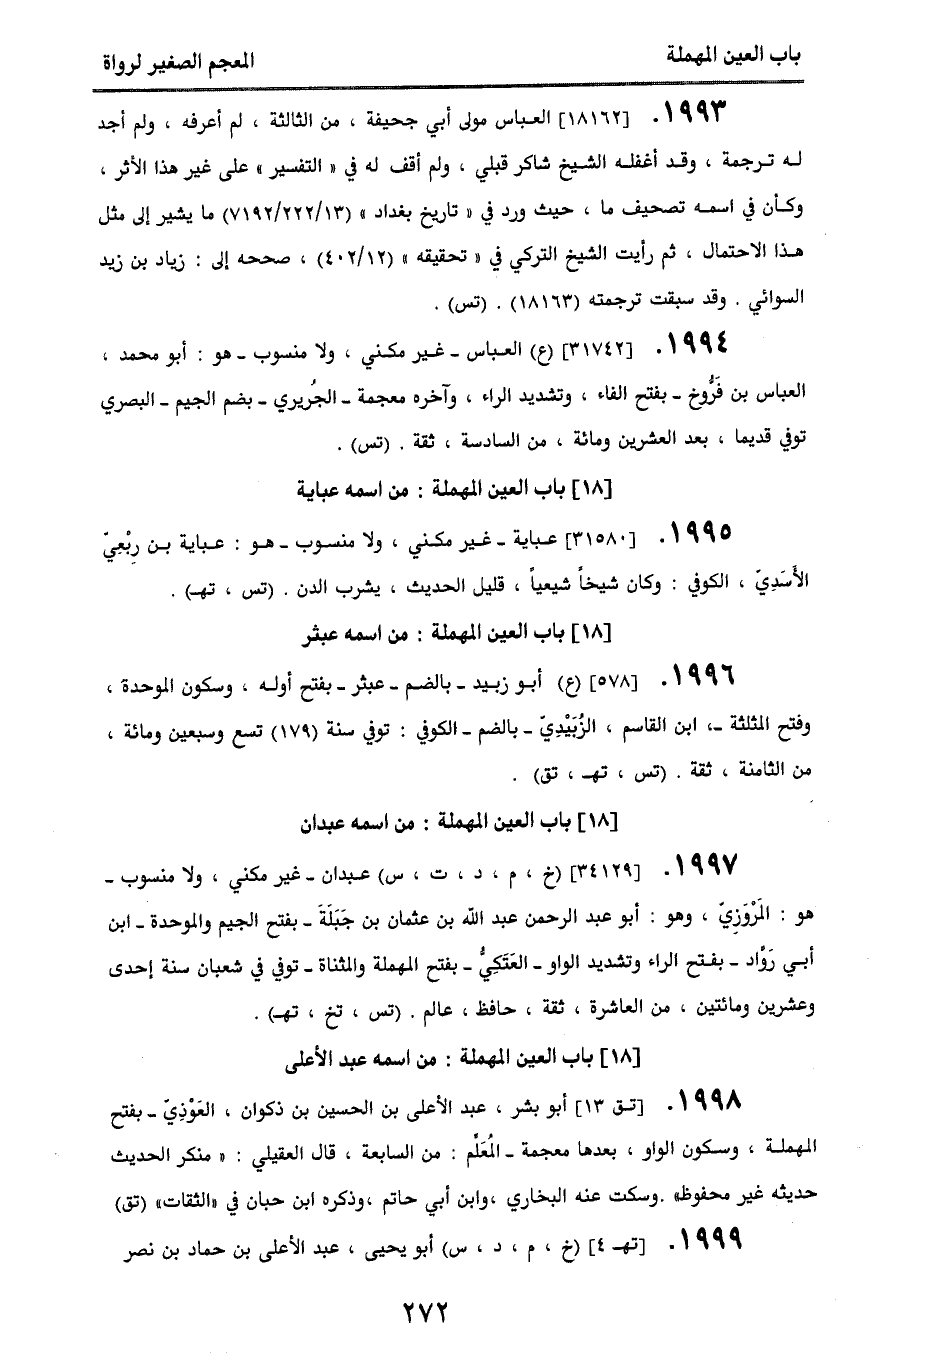 باب العين المهملة
المعجم الصغير لرواة
١٩٩٣. [١٨١٦٢] العباس مولى أبي جحيفة ، من الثالثة ، لم أعرفه ، ولم أجد
له ترجمة ، وقد أغفله الشيخ شاكر قبلي ، ولم أقف له في « التفسير » على غير هذا الأثر ،
وكأن في اسمه تصحيف ما ، حيث ورد في « تاريخ بغداد » (٧١٩٢/٢٢٢/١٣) ما يشير إلى مثل
هذا الاحتمال ، ثم رأيت الشيخ التركي في « تحقيقه » (٤٠٢/١٢) ، صححه إلى : زياد بن زيد
السوائي . وقد سبقت ترجمته (١٨١٦٣) . (تس) .
١٩٩٤. [٣١٧٤٢] (ع) العباس ـ غير مكني ، ولا منسوب ـ هو : أبو محمد ،
العباس بن فَرُّوخ ـ بفتح الفاء ، وتشديد الراء ، وآخره معجمة ـ الجُريري ـ بضم الجيم ـ البصري
توفي قديما ، بعد العشرين ومائة ، من السادسة ، ثقة . (تس) .
[١٨] باب العين المهملة : من اسمه عباية
١٩٩٥. [٣١٥٨٠] عباية ـ غير مكني ، ولا منسوب ـ هو : عباية بن رِبْعِيّ
الأَسَدِيّ ، الكوفي : وكان شيخاً شيعياً ، قليل الحديث ، يشرب الدن . (تس ، تهـ) .
[١٨] باب العين المهملة : من اسمه عبثر
١٩٩٦. [٥٧٨] (ع) أبو زبيد ـ بالضم ـ عبثر ـ بفتح أوله ، وسكون الموحدة ،
وفتح المثلثة ـ، ابن القاسم ، الزُبَيْدِيّ ـ بالضم ـ الكوفي : توفي سنة (١٧٩) تسع وسبعين ومائة ،
من الثامنة ، ثقة . (تس ، تهـ ، تق) .
[١٨] باب العين المهملة : من اسمه عبدان
١٩٩٧. [٣٤١٢٩] (خ ، م ، د ، ت ، س) عبدان ـ غير مكني ، ولا منسوب ـ
هو : المَرْوَزِيّ ، وهو : أبو عبد الرحمن عبد الله بن عثمان بن جَبَلَةَ ـ بفتح الجيم والموحدة ـ ابن
أبي رَوَّاد ـ بفتح الراء وتشديد الواو ـ العَتَكِيُّ ـ بفتح المهملة والمثناة ـ توفي في شعبان سنة إحدى
وعشرين ومائتين ، من العاشرة ، ثقة ، حافظ ، عالم . (تس ، تخ ، تهـ) .
[١٨] باب العين المهملة : من اسمه عبد الأعلى
١٩٩٨. [تـق ١٣] أبو بشر ، عبد الأعلى بن الحسين بن ذكوان ، العَوْذِيّ ـ بفتح
المهملة ، وسكون الواو ، بعدها معجمة ـ المُعَلِّم : من السابعة ، قال العقيلي : « منكر الحديث
حديثه غير محفوظ» .وسكت عنه البخاري ،وابن أبي حاتم ،وذكره ابن حبان في «الثقات» (تق)
١٩٩٩. [تهـ ٤] (خ ، م ، د ، س) أبو يحيى ، عبد الأعلى بن حماد بن نصر
٢٧٢